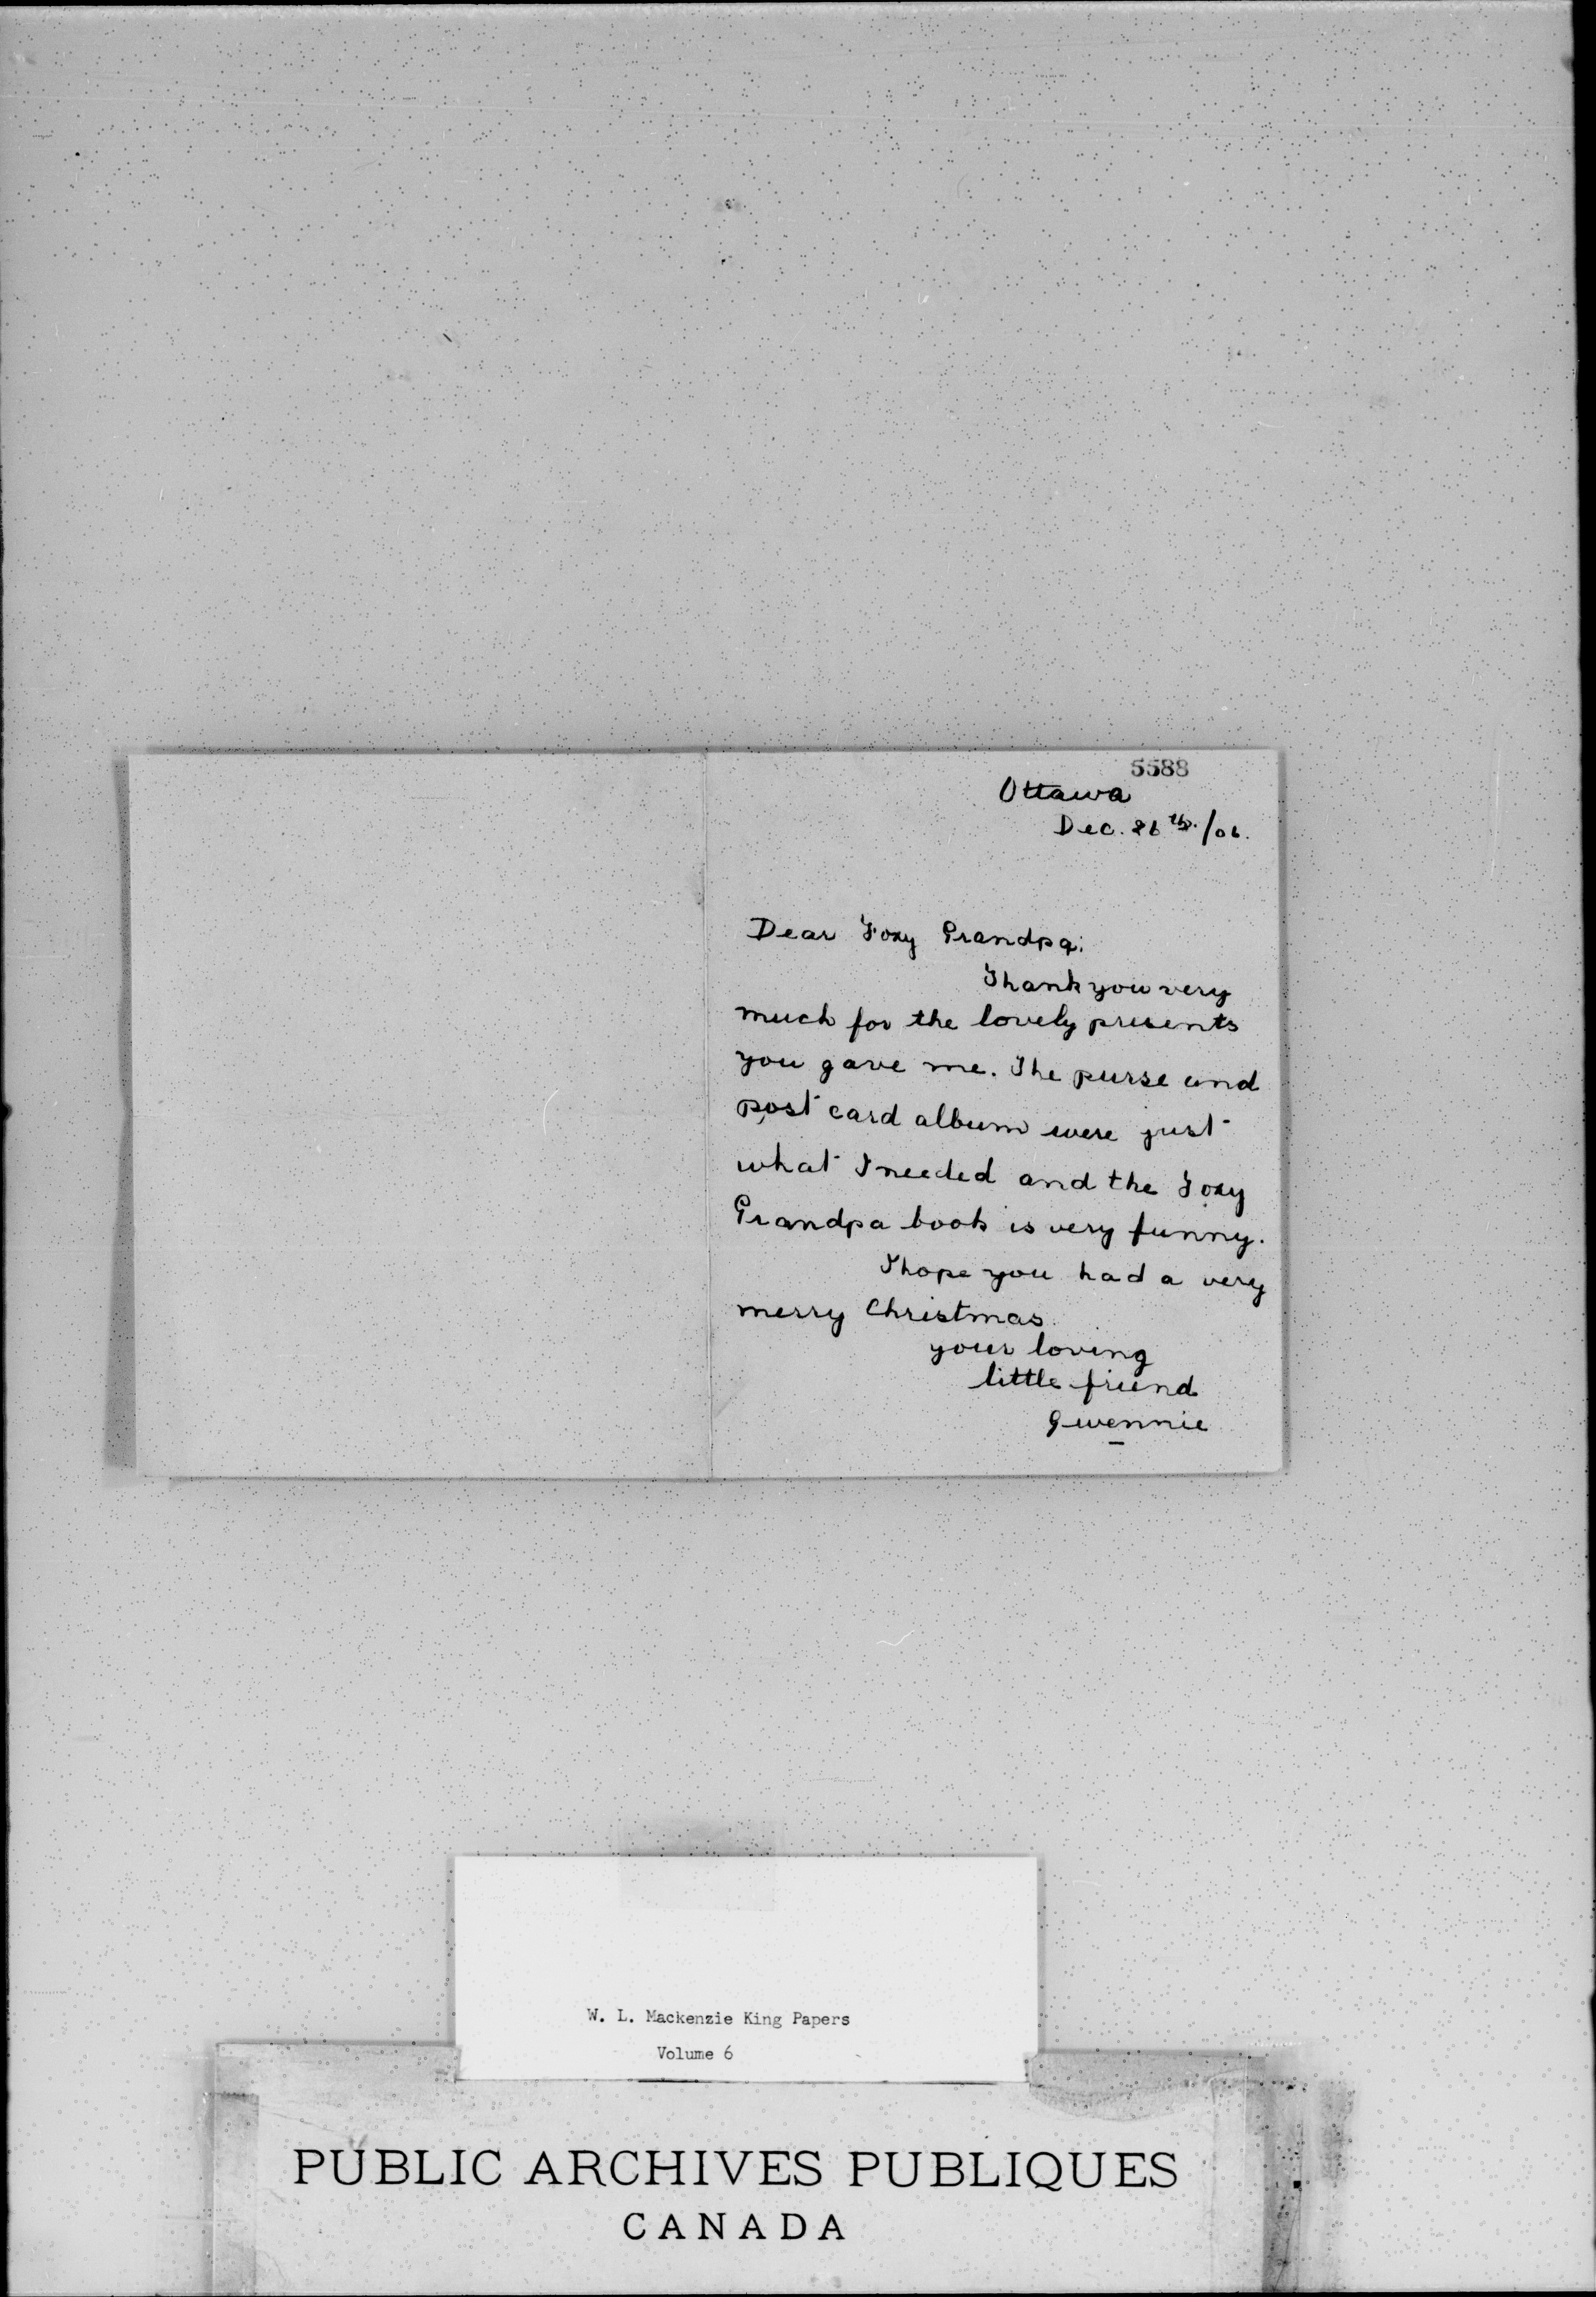 5588
Ottawa
Dec. 26th./06.
Dear Foxy Grandpa:
Thank you very
much for the lovely presents
you gave me. The purse and
post card album were just
what I needed and the Foxy
Grandpa book is very funny.
I hope you had a very
merry Christmas.
your loving
little friend
Gwennie
W. L. Mackenzie King Papers
Volume 6
PUBLIC ARCHIVES PUBLIQUES
CANADA